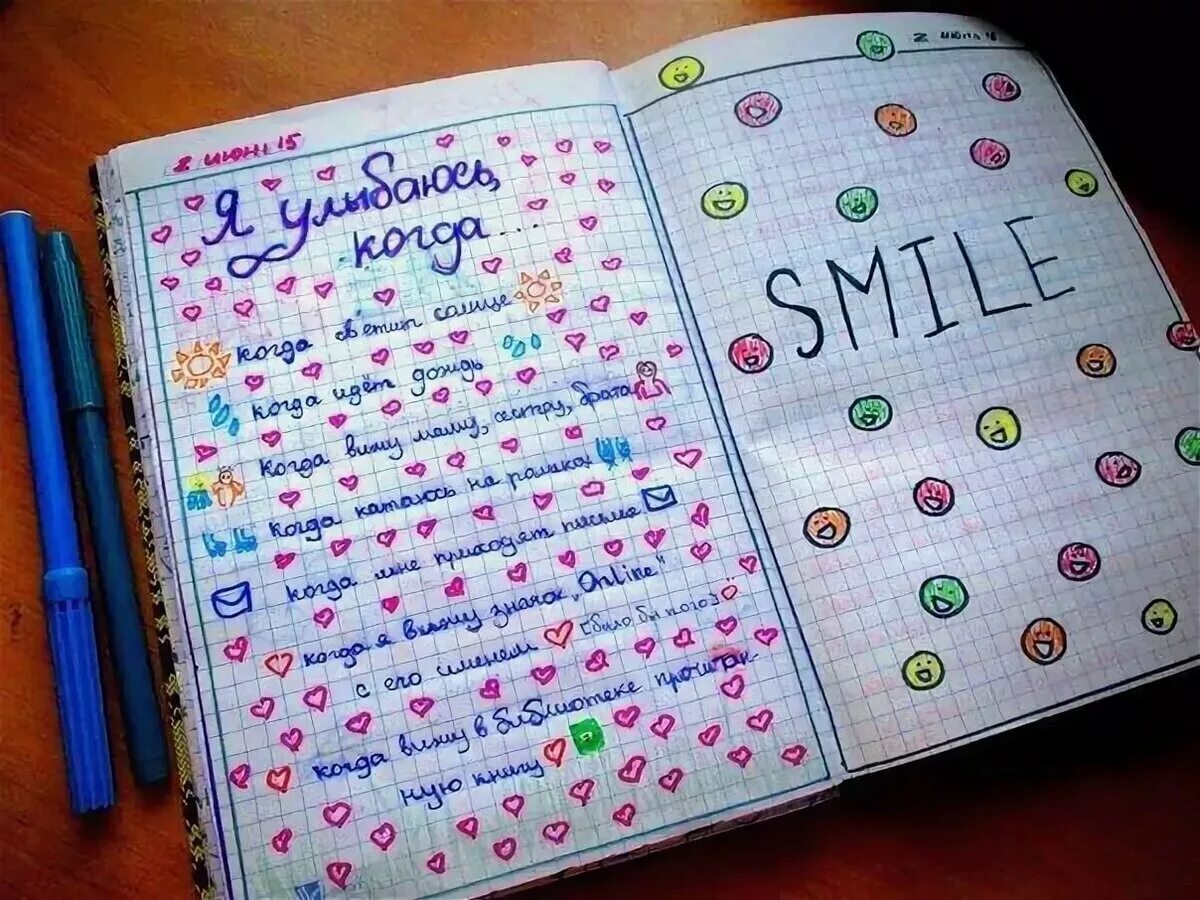 2 июня 15
Я улыбаюсь,
когда...
когда светит солнце
когда идёт дождь
когда вижу маму, сестру, брата
когда катаюсь на роликах
когда мне приходят письма
когда я вижу значок „Online"
с его именем (было бы кого)
когда вижу в библиотеке прочитан-
ную книгу
2
SMILE